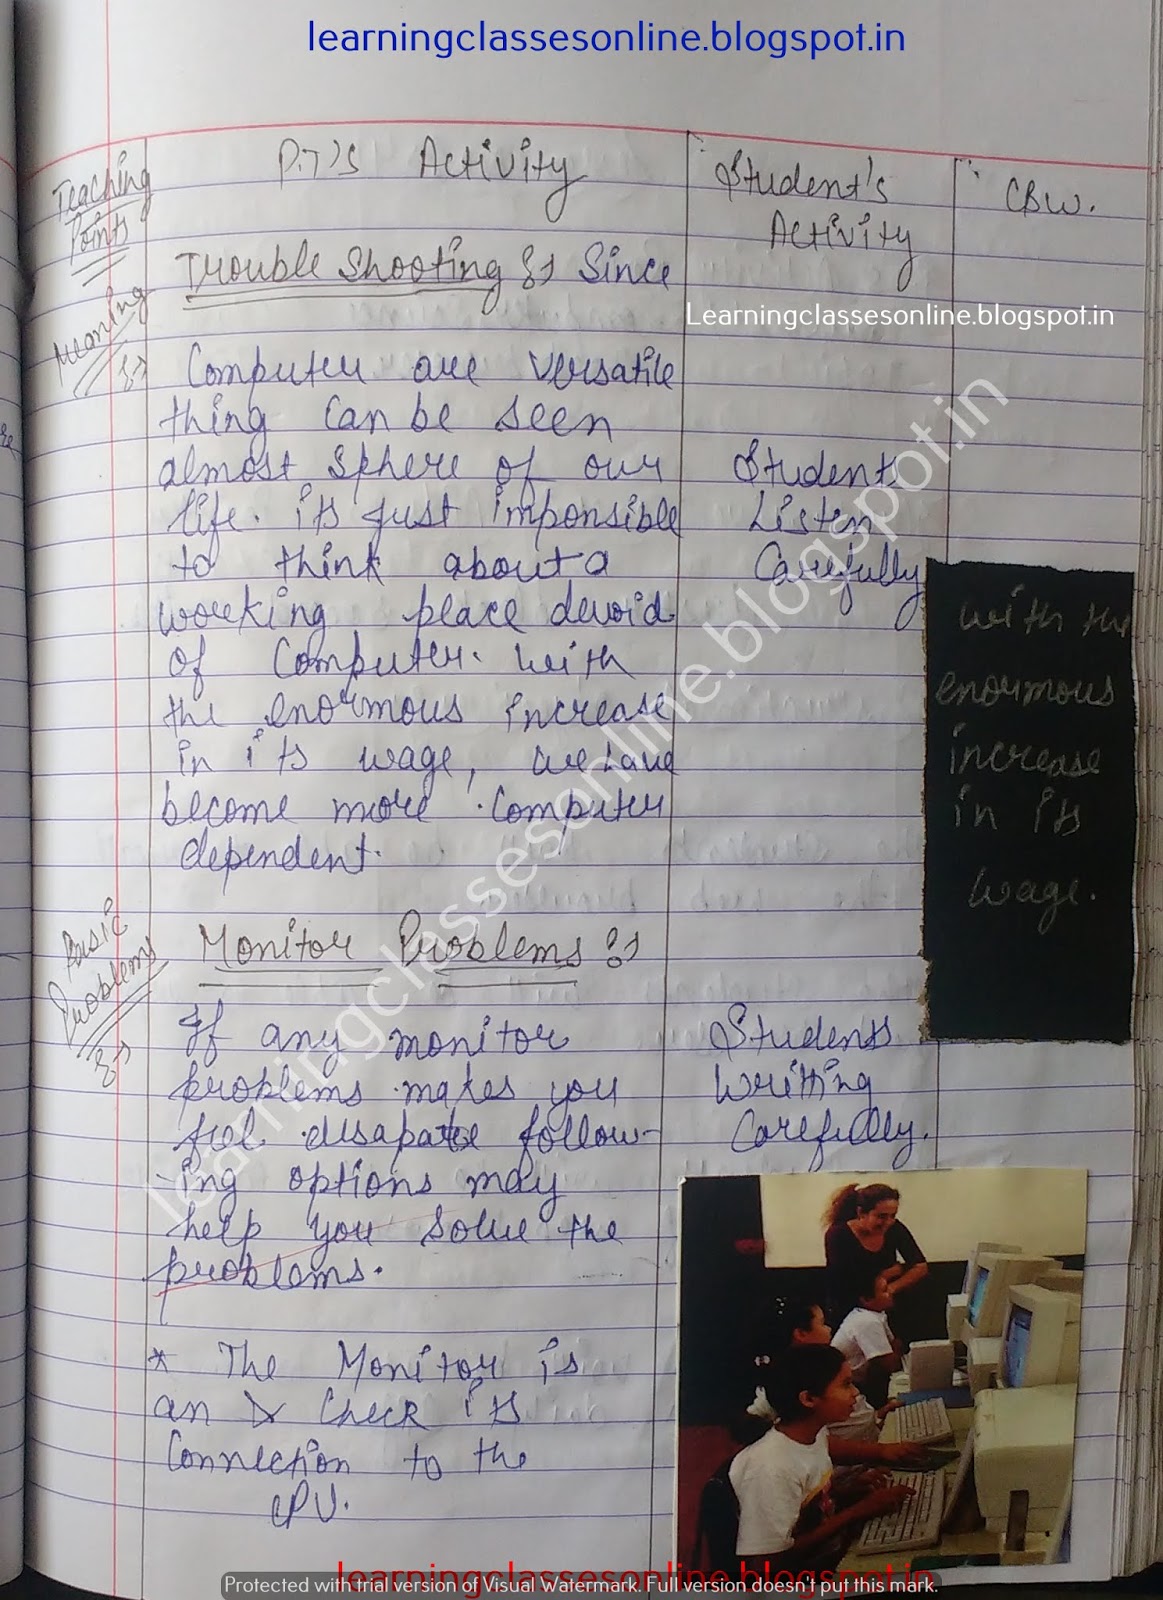 learningclassesonline.blogspot.in
Teaching
Points
P.T's Activity
Student's
Activity
CBW.
Meaning
Trouble Shooting :- Since
Learningclassesonline.blogspot.in
Computer are versatile
thing can be seen
almost sphere of our
life. its just imponsible
to think about a
working place devoid
of Computer. with
the enormous increase
in its wage, we have
become more computer
dependent.
Students
Listen
Carefully
with the
enormous
increase
in its
wage.
Basic
Problems
Monitor Problems :-
If any monitor
problems makes you
feel disapate follow-
-ing options may
help you solve the
problems.
Students
Writting
Carefully.
* The Monitor is
an & Check its
Connection to the
CPU.
learningclassesonline.blogspot.in
learningclassesonline.blogspot.in
Protected with trial version of Visual Watermark. Full version doesn't put this mark.